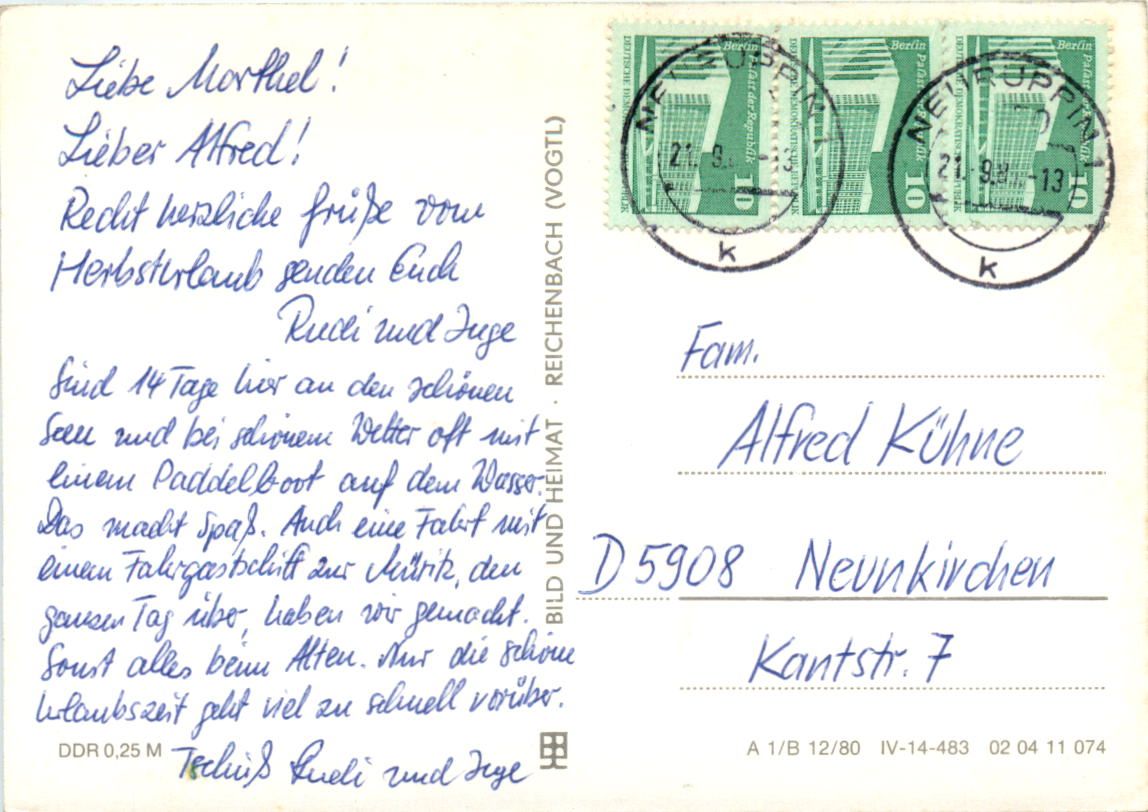 Liebe Marthel!
Lieber Alfred!
Recht herzliche Grüße vom
Herbsturlaub senden Euch
Rudi und Inge
Sind 14 Tage hier an den schönen
Seen und bei schönem Wetter oft mit
einem Paddelboot auf dem Wasser.
Das macht Spaß. Auch eine Fahrt mit
einem Fahrgastschiff zur Müritz, den
ganzen Tag über, haben wir gemacht.
Sonst alles beim Alten. Nur die schöne
Urlaubszeit geht viel zu schnell vorüber.
Tschüß Rudi und Inge
DDR 0,25 M
BILD UND HEIMAT · REICHENBACH (VOGTL)
Berlin
Palast der Republik
10
Berlin
Palast der Republik
10
Berlin
Palast der Republik
10
NEURUPPIN 1
21.-9.8
-13
k
NEURUPPIN 1
21.-9.8
-13
k
Fam.
Alfred Kühne
D 5908 Neunkirchen
Kantstr. 7
A 1/B 12/80 IV-14-483 02 04 11 074